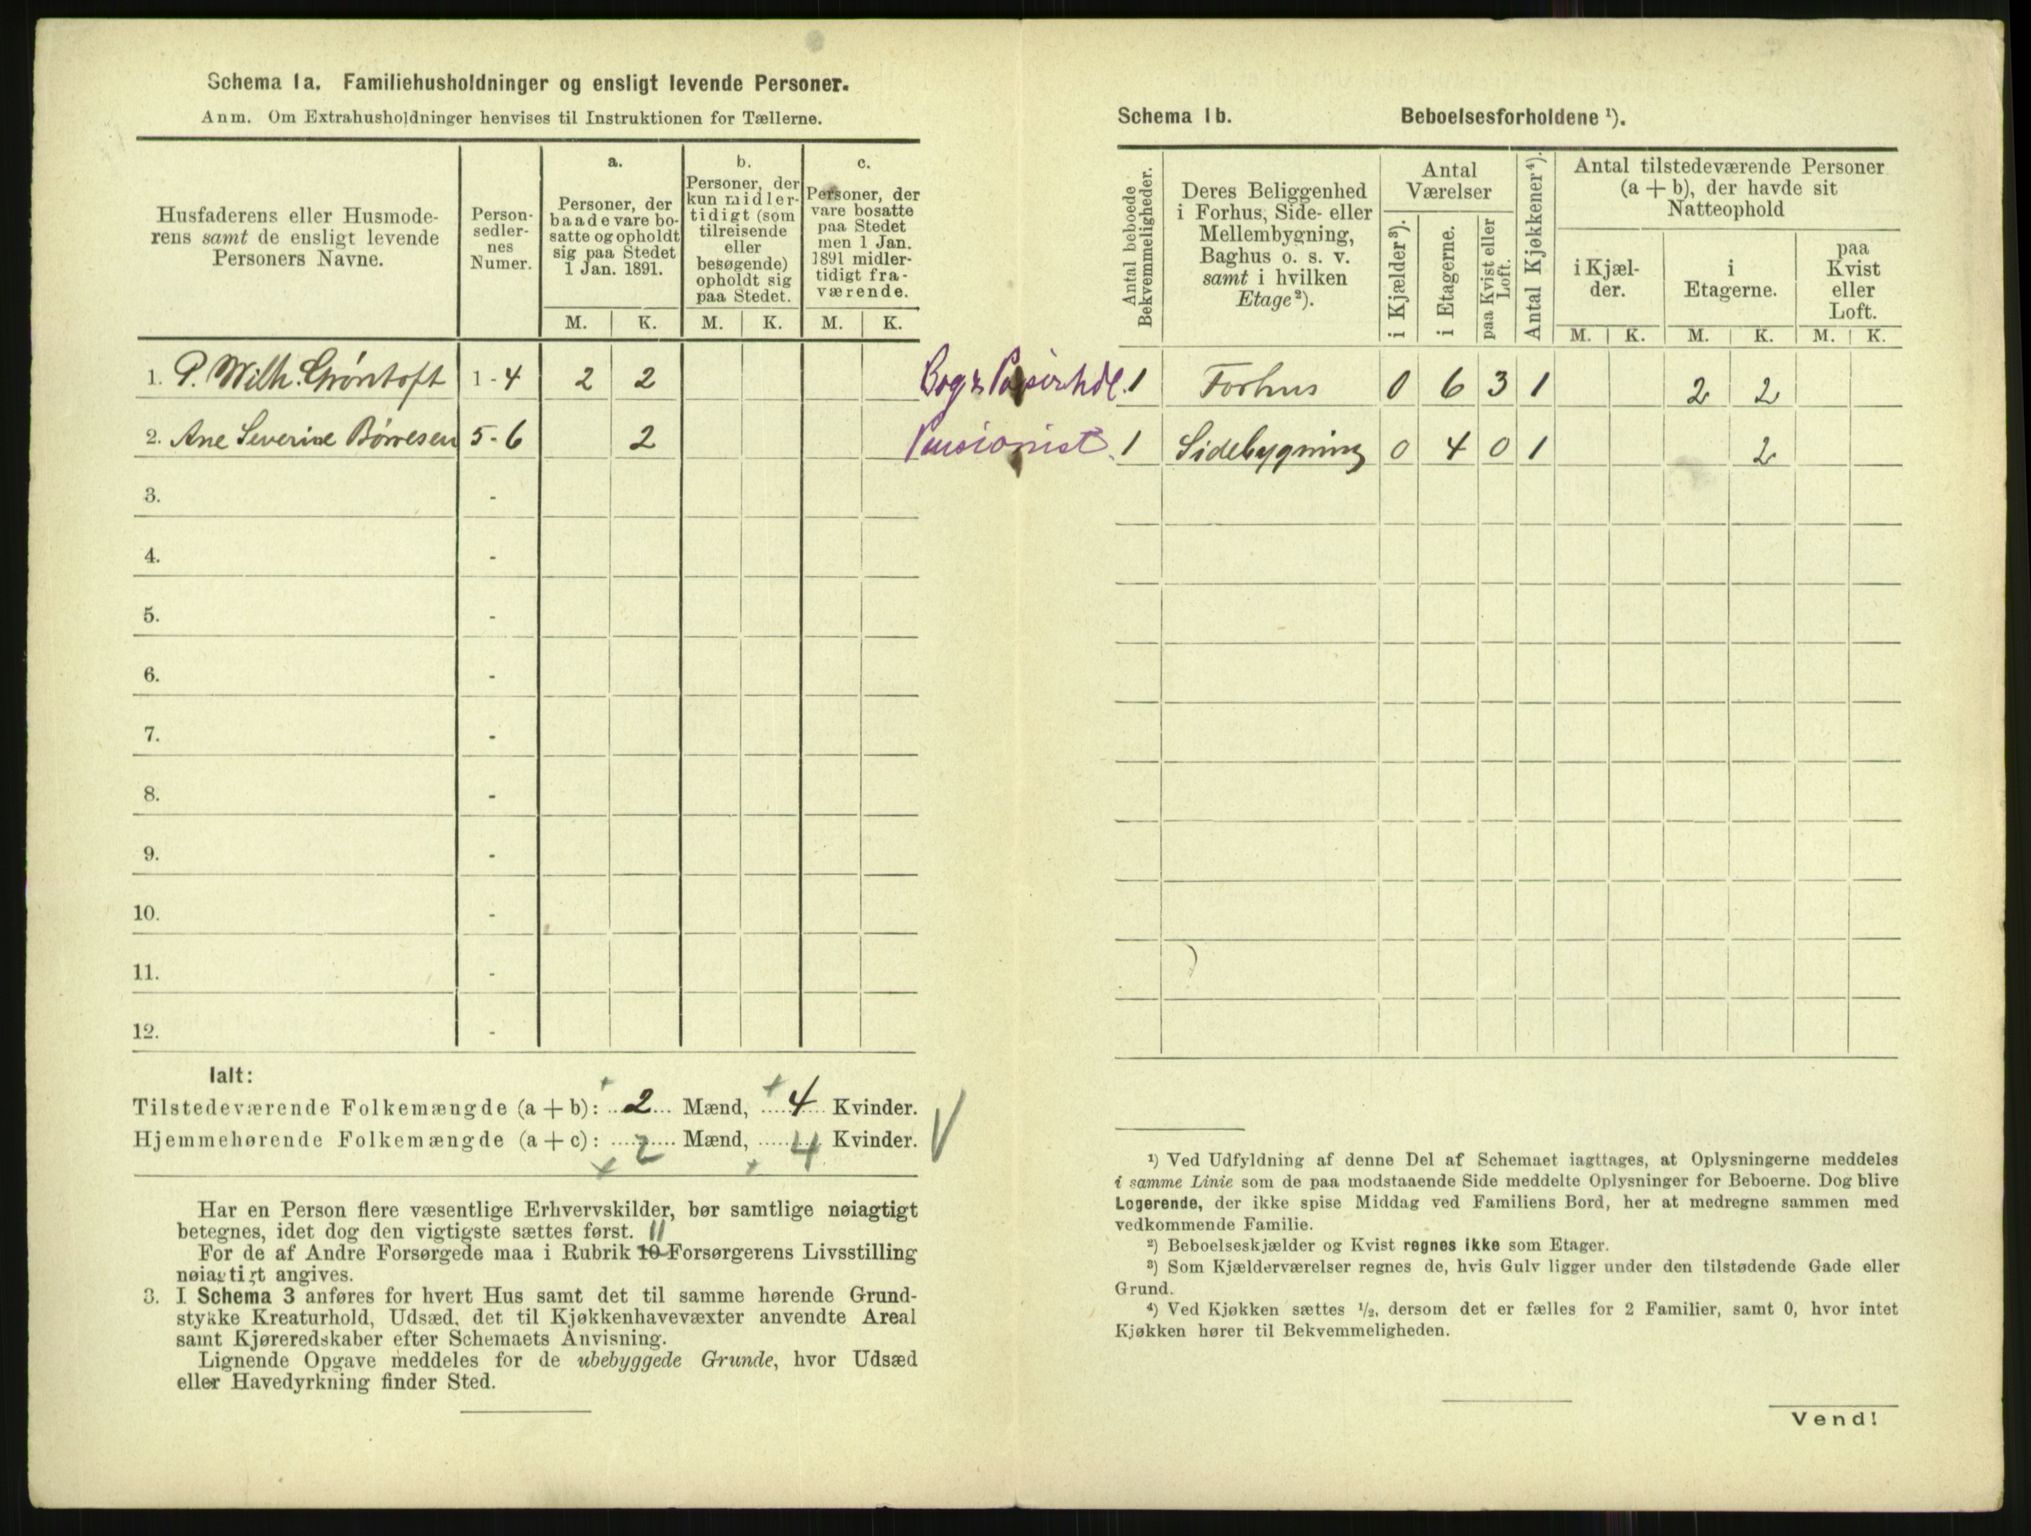 Schema 1a. Familiehusholdninger og ensligt levende Personer.
Anm. Om Extrahusholdninger henvises til Instruktionen for Tællerne.
Husfaderens eller Husmode-
rens samt de ensligt levende
Personers Navne.
Person-
sedler-
nes
Numer.
a.
Personer, der
baade vare bo-
satte og opholdt
sig paa Stedet
1 Jan. 1891.
b.
Personer, der
kun midler-
tidigt (som
tilreisende
eller
besøgende)
opholdt sig
paa Stedet.
c.
Personer, der
vare bosatte
paa Stedet
men 1 Jan.
1891 midler-
tidigt fra-
værende.
M. K. M. K. M. K.
1. P. Wilh. Grøntoft 1-4 2 2
2. Ane Severine Børresen 5-6 2
3. -
4. -
5. -
6. -
7. -
8. -
9. -
10. -
11. -
12. -
Ialt:
Tilstedeværende Folkemængde (a + b): 2 Mænd, 4 Kvinder.
Hjemmehørende Folkemængde (a + c): 2 Mænd, 4 Kvinder.
Har en Person flere væsentlige Erhvervskilder, bør samtlige nøiagtigt
betegnes, idet dog den vigtigste sættes først. 11
For de af Andre Forsørgede maa i Rubrik 10 Forsørgerens Livsstilling
nøiagtigt angives.
3. I Schema 3 anføres for hvert Hus samt det til samme hørende Grund-
stykke Kreaturhold, Udsæd, det til Kjøkkenhavevæxter anvendte Areal
samt Kjøreredskaber efter Schemaets Anvisning.
Lignende Opgave meddeles for de ubebyggede Grunde, hvor Udsæd
eller Havedyrkning finder Sted.
Schema 1b. Beboelsesforholdene ¹).
Antal beboede
Bekvemmeligheder.
Deres Beliggenhed
i Forhus, Side- eller
Mellembygning,
Baghus o. s. v.
samt i hvilken
Etage²).
Antal
Værelser
i Kjælder³).
i Etagerne.
paa Kvist eller
Loft.
Antal Kjøkkener⁴).
Antal tilstedeværende Personer
(a + b), der havde sit
Natteophold
i Kjæl-
der.
i
Etagerne.
paa
Kvist
eller
Loft.
M. K. M. K. M. K.
Bog & Papirhdl. 1 Forhus 0 6 3 1 2 2
Pensionist. 1 Sidebygning 0 4 0 1 2
¹) Ved Udfyldning af denne Del af Schemaet iagttages, at Oplysningerne meddeles
i samme Linie som de paa modstaaende Side meddelte Oplysninger for Beboerne. Dog blive
Logerende, der ikke spise Middag ved Familiens Bord, her at medregne sammen med
vedkommende Familie.
²) Beboelseskjælder og Kvist regnes ikke som Etager.
³) Som Kjælderværelser regnes de, hvis Gulv ligger under den tilstødende Gade eller
Grund.
⁴) Ved Kjøkken sættes ½, dersom det er fælles for 2 Familier, samt 0, hvor intet
Kjøkken hører til Bekvemmeligheden.
Vend!